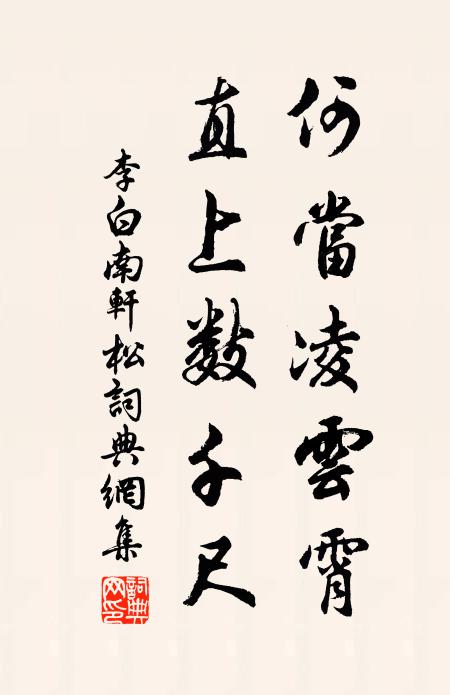 何當凌雲霄
直上数千尺
李白南軒松詞典網集
詞典網印